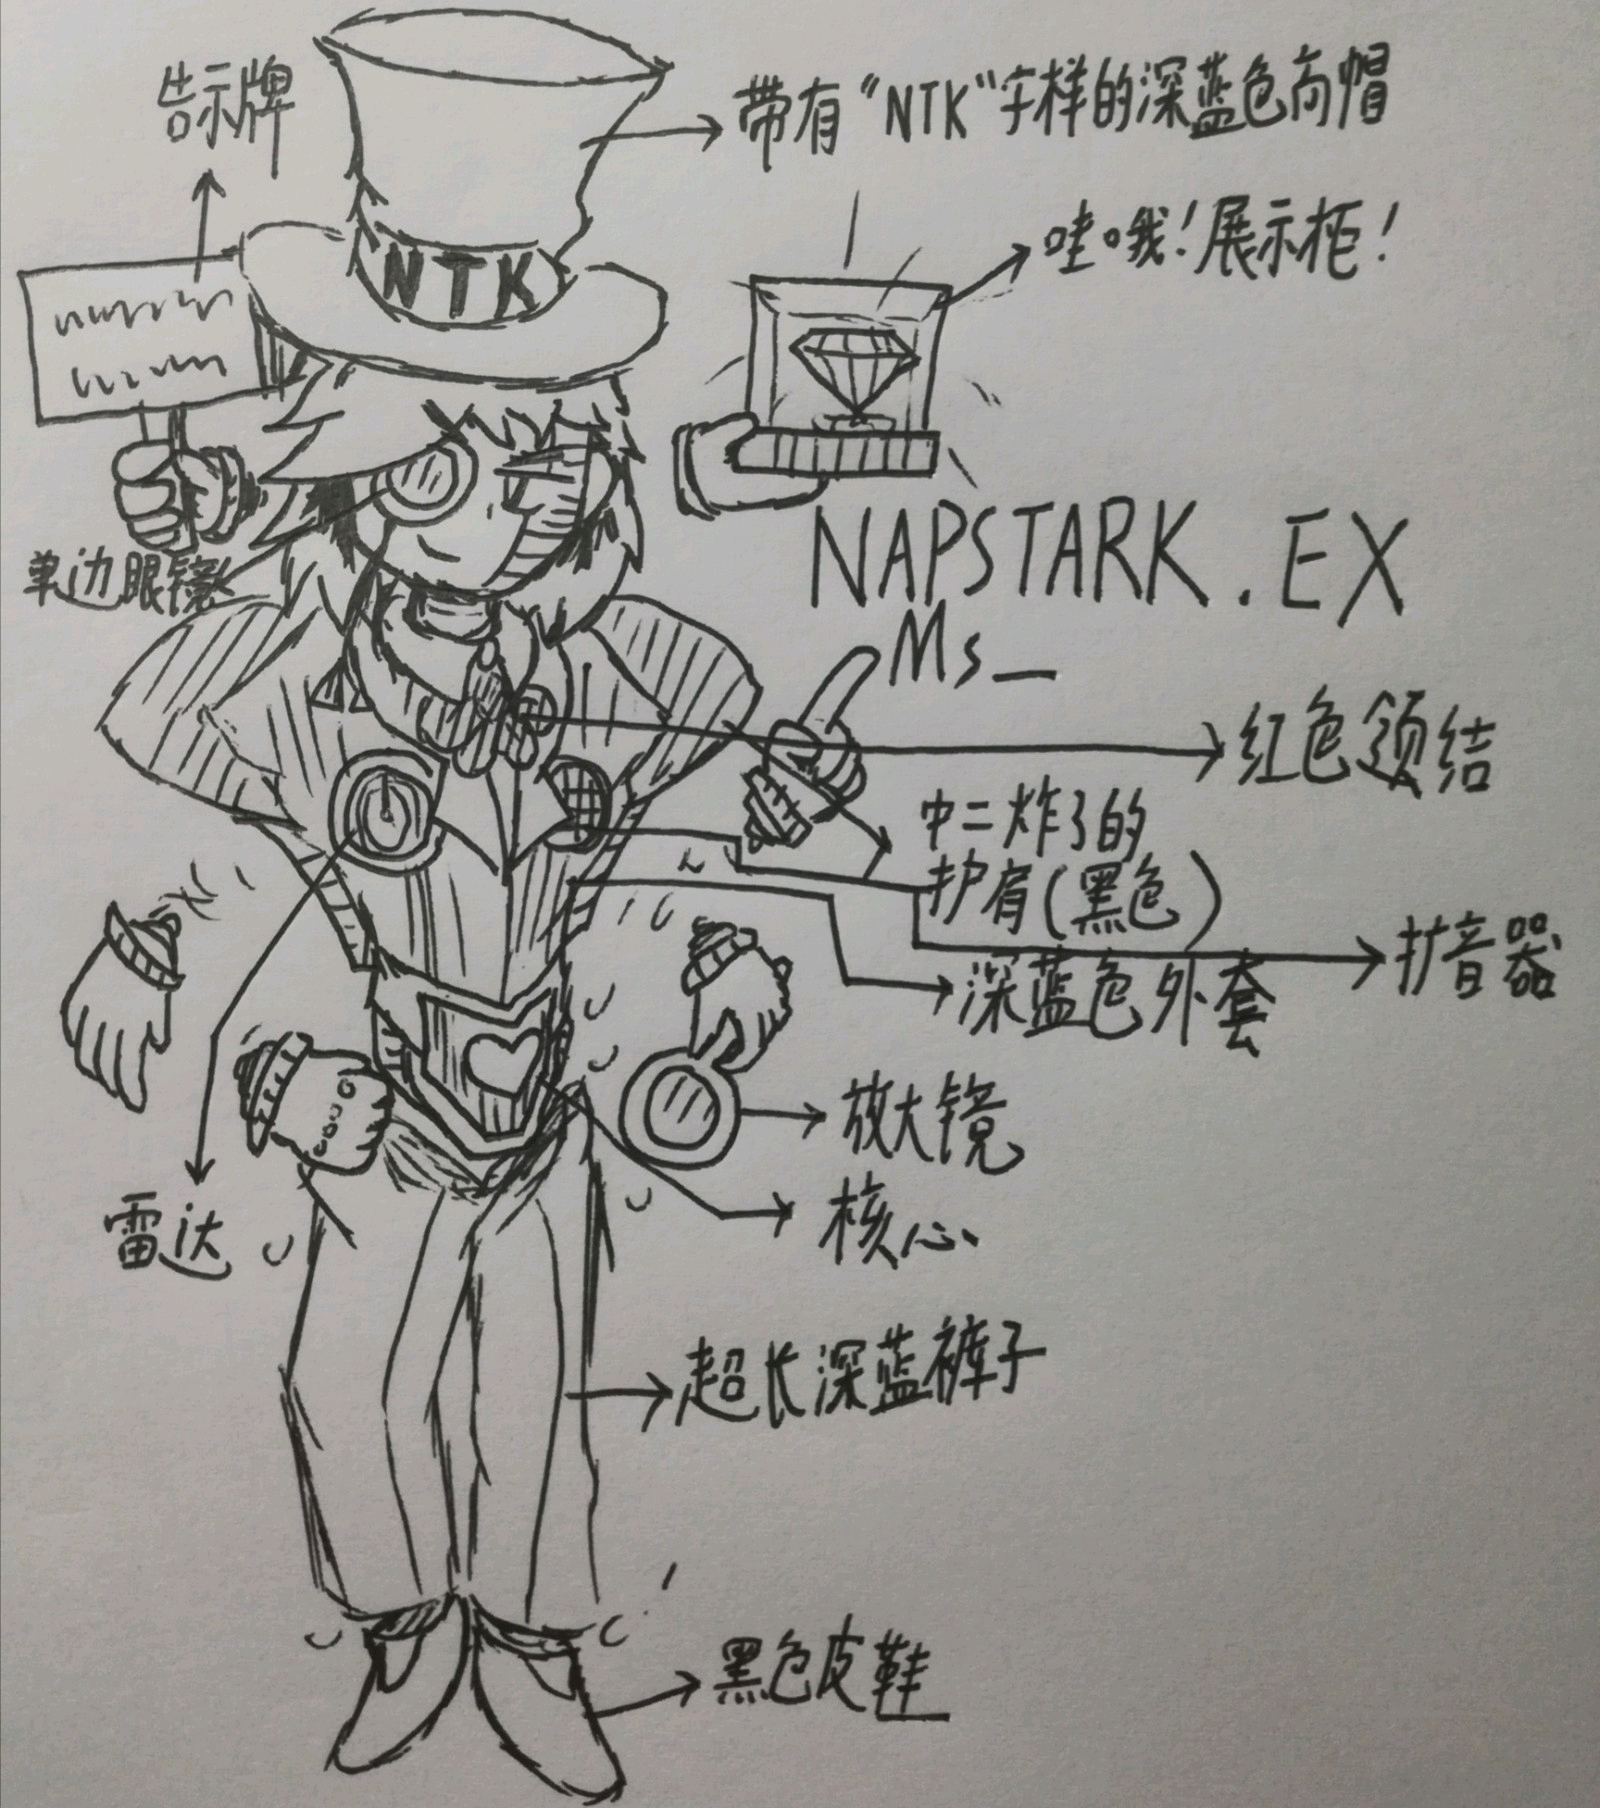 告示牌
带有“NTK”字样的深蓝色高帽
哇哦！展示柜！
NTK
NAPSTARK.EX
Ms_
单边眼镜
红色领结
中二炸了的
护肩(黑色)
扩音器
深蓝色外套
放大镜
核心
雷达
超长深蓝裤子
黑色皮鞋